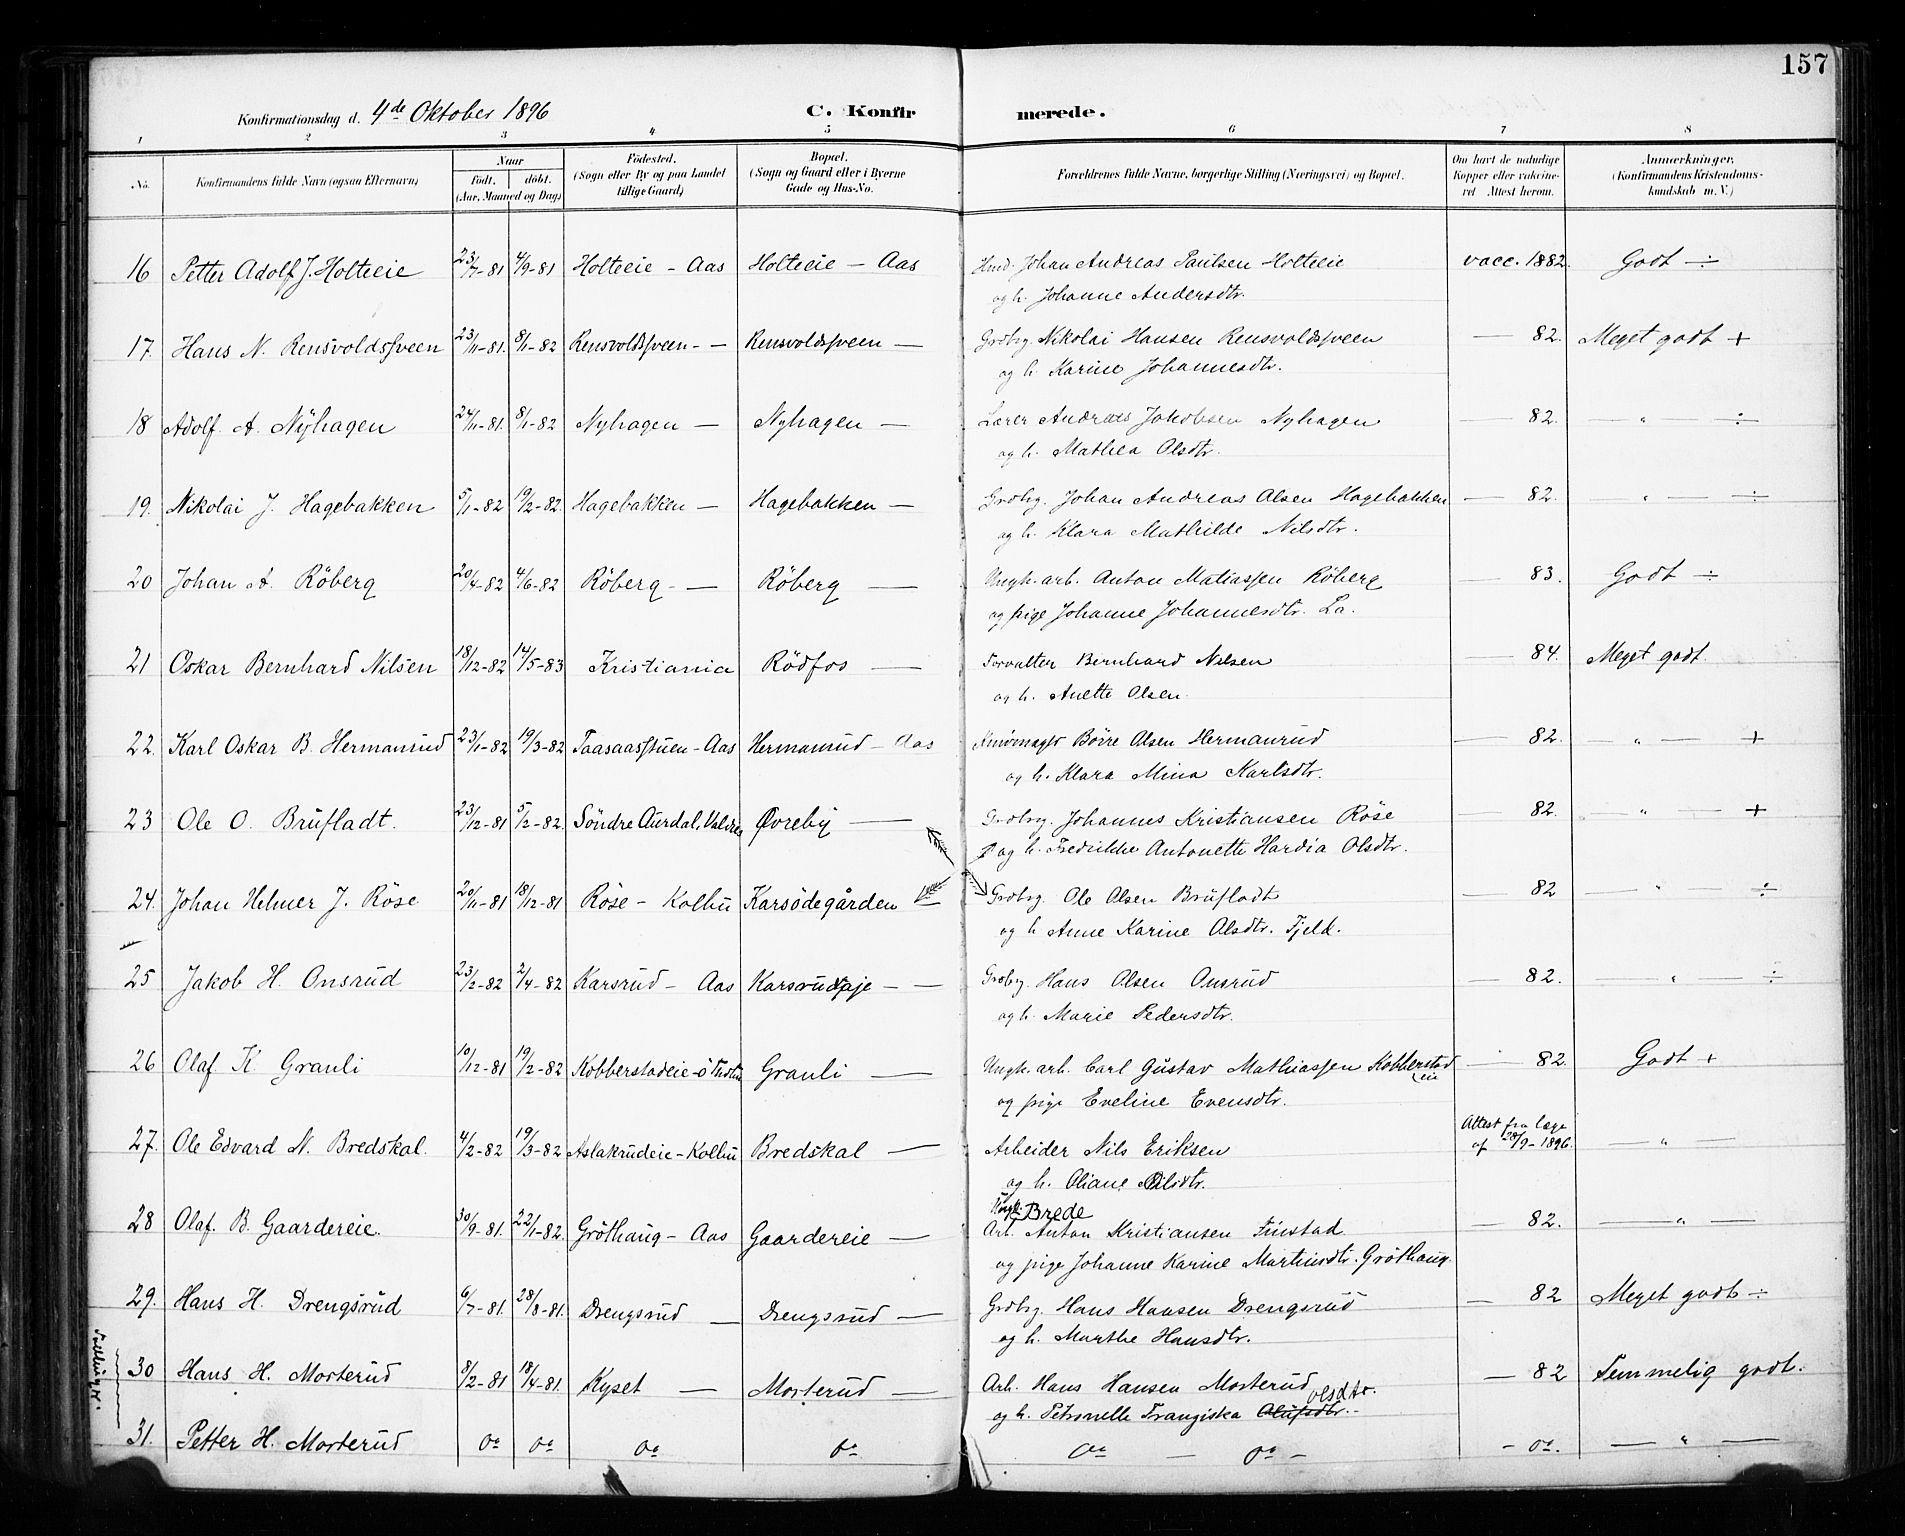 157
Konfirmationsdag d. 4de Oktober 1896 C. Konfir merede.
1 2 3 4 5 6 7 8
No. Konfirmandens fulde Navn (ogsaa Efternavn) Naar født, døbt. (Aar, Maaned og Dag) Fødested. (Sogn eller By og paa Landet tillige Gaard) Bopæl. (Sogn og Gaard eller i Byerne Gade og Hus-No. Forældrenes fulde Navne, borgerlige Stilling (Næringsvei) og Bopæl. Om havt de naturlige Kopper eller vakcineret Attest herom. Anmærkninger. (Konfirmandens Kristendomskundskab m. V.)
16 Petter Adolf J. Holteeie 23/7-81 4/9-81 Holteeie - Aas Holteeie - Aas Hmd. Johan Andreas Paulsen Holteeie vacc. 1882. Godt ÷
og h. Johanne Andersdtr.
17. Hans N. Rensvoldsveen 23/11-81. 8/1-82 Rensvoldsveen - — Rensvoldsveen — Grdbrg. Nikolai Hansen Rensvoldsveen — 82. Meget godt +
og h. Karine Johannesdtr.
18 Adolf A. Nÿhagen 24/11-81. 8/1-82 Nyhagen — Nyhagen — Lærer Andreas Jakobsen Nyhagen — 82. — " — ÷
og h. Mathea Olsdtr.
19. Nikolai J. Hagebakken 5/1-82 19/2-82. Hagebakken — Hagebakken — Grdbrg. Johan Andreas Olsen Hagebakken — 82. " — ÷
og h. Klara Mathilde Nilsdtr.
20 Johan A. Röberg 20/4-82 4/6-82 Röberg - — Röberg — Ungk. arb. Anton Matiassen Röberg — 83. Godt ÷
og pige Johanne Johannesdtr. La.
21 Oskar Bernhard Nilsen 18/12-82 14/5-83 Kristiania Rödfos — Forvalter Bernhard Nilsen — 84. Meget godt
og h. Anette Olsen
22. Karl Oskar B. Hermanrud 23/1-82 19/3-82 Taasaasstuen - Aas Hermanrud - Aas Börre Olsen Hermanrud — 82. — " — +
og h. Klara Mina Karlsdtr.
23 Ole O. Brufladt. 23/12-81 5/2-82. Söndre Aurdal, Valdres Øvreby — Grdbrg. Johannes Kristiansen Röse — 82. — " — +
og h. Fredrikke Antonette Hardia Olsdtr.
24. Johan Helmer J. Röse 20/11-81 18/12-81 Röse - Kolbu Karsödegården Grdbrg. Ole Olsen Brufladt — 82 — " — ÷
og h Anne Karine Olsdtr. Fjeld.
25 Jakob H. Onsrud 23/2-82 2/4-82 Karsrud - Aas Karsrudeje - — Grdbrg. Hans Olsen Onsrud — 82. — " — ÷
og h. Marie Pedersdtr.
26 Olaf K. Granli 10/12-81 19/2-82 Kobberstadeie - ö Thoten Granli — Ungk. arb. Carl Gustav Mathiassen Kobberstad eie — 82. Godt +
og pige Eveline Evensdtr.
27. Ole Edvard N. Bredskal. 4/2-82 19/3-82 Aslakrudeie - Kolbu Bredskal — Arbeider Nils Eriksen Attest fra læge af 28/9-1896. — " —
og h. Oliane Nilsdtr.
28 Olaf. B. Gaardereie. 30/9-81. 22/1-82. Gröthaug - Aas Gaardereie — Ungk. Arb. Brede Anton Kristiansen Finstad — 82. — " —
og pige Johanne Karine Martinsdtr. Gröthaug.
29. Hans H. Drengsrud 6/7-81. 28/8-81. Drengsrud — Drengsrud — Grdbrg. Hans Hansen Drengsrud — 82 Meget godt ÷
og h. Marthe Hansdtr.
Tvillinger.
30 Hans H. Morterud 8/2-81 18/4-81. Kyset — Morterud — Arb. Hans Hansen Morterud — 82 Temmelig godt.
og h. Petronelle Frangiska Olufsdtr. olsdtr.
31. Petter H. Morterud do do do do do — do - - do. — " —